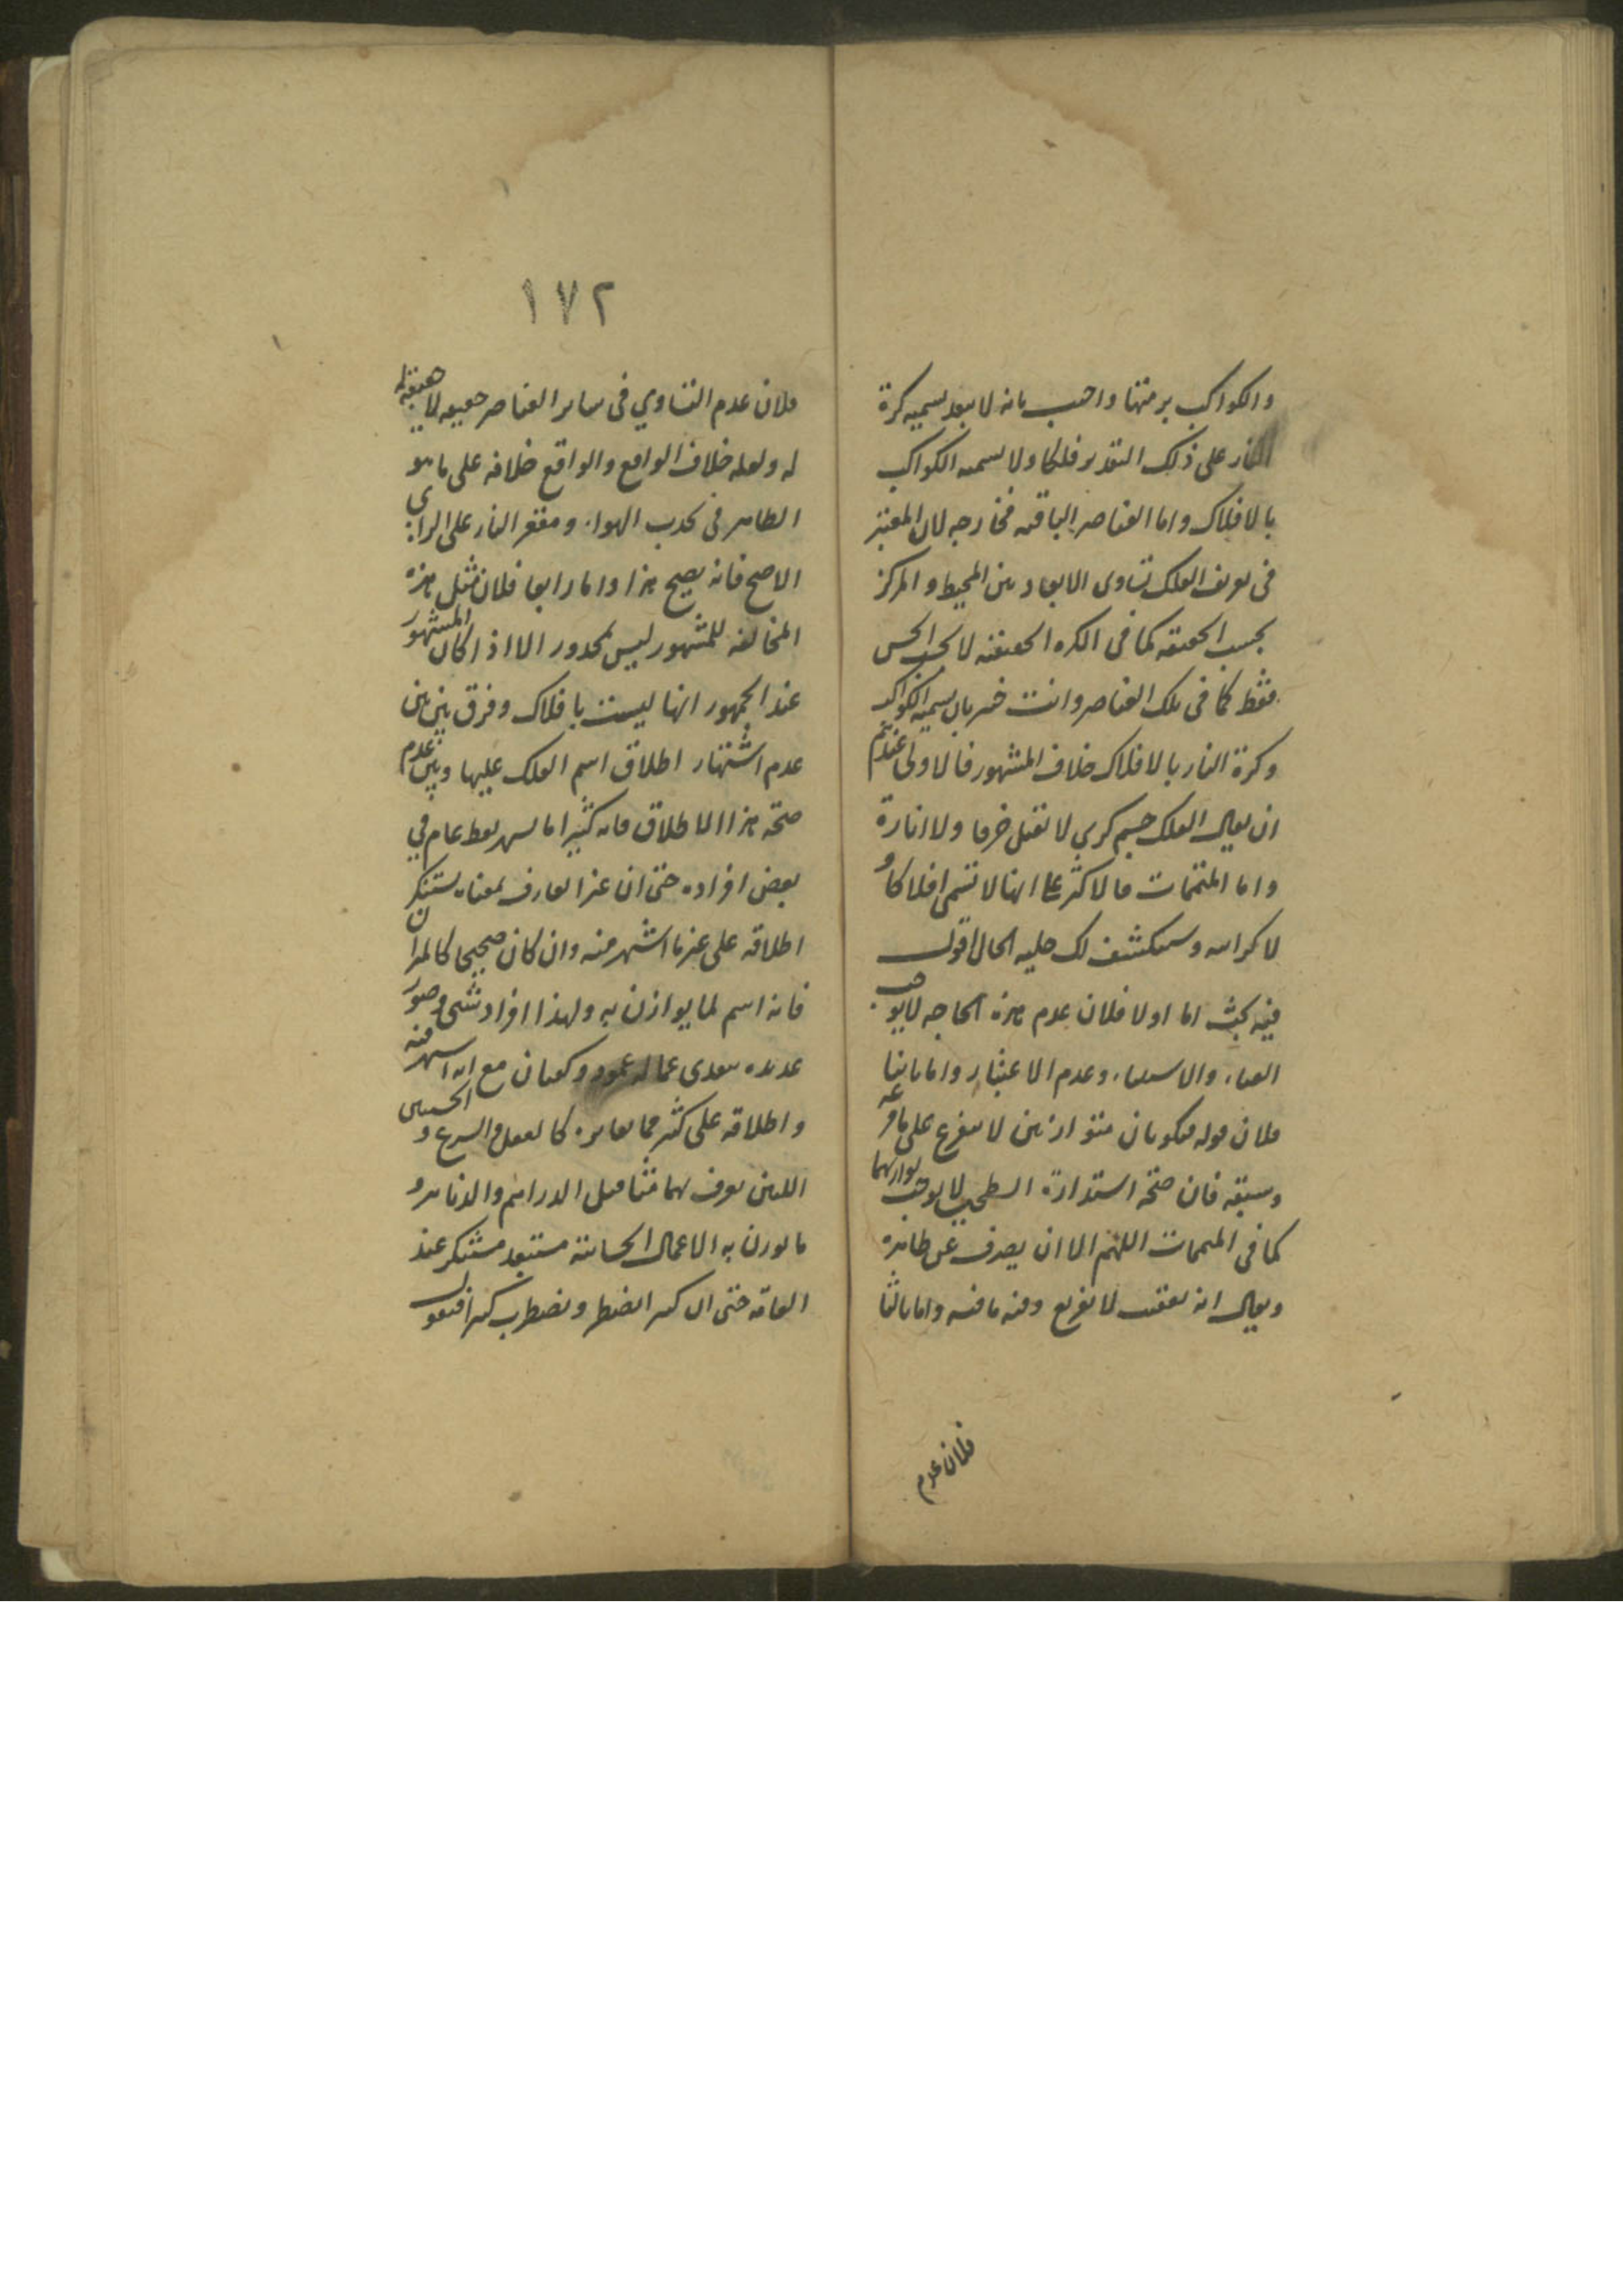 والكواكب برمتها واجيب بانه لا يبعد تسميه كرة
النار على ذلك التقدير فلكا ولا تسميه الكواكب
بالافلاك واما العناصر الباقيه فخارجه لان المعتبر
فى تعريف الفلك تساوى الابعاد بين المحيط والمركز
بحسب الحقيقه كما فى الكره الحقيقيه لا بحسب الحس
فقط كما فى تلك العناصر وانت خبير بان تسميه الكواكب
وكرة النار بالافلاك خلاف المشهور فالاولى عندهم
ان يقال الفلك جسم كري لا يقبل خرقا ولا انارة
واما المتممات فالاكثر على انها لا تسمى افلاكا و
لا كرامه وستكشف لك جليه الحال اقول
فيه بحث اما اولا فلان عدم هذه الحاجه لا يوجب
الغناء والاستغناء وعدم الاعتبار واما ثانيا
فلان قوله فيكونان متوازيين لا يتفرع على ما فرعه
وسبقه فان صحة استدارة السطحين لا يوجب توازيهما
كما فى المتممات اللهم الا ان يصرف عن ظاهره
ويقال انه تعقيب لا تفريع وفيه ما فيه واما ثالثا
فلان عدم
١٧٢
فلان عدم التساوي فى ساير العناصر حقيقه لا حقيقة
له ولعله خلاف الواقع والواقع خلافه على ما هو
الظاهر فى محدب الهواء ومقعر النار على الراى
الاصح فانه يصح هذا واما رابعا فلان مثل هذه
المخالفه للمشهور ليس بمحذور الا اذا كان المشهور
عند الجمهور انها ليست بافلاك وفرق بين بين
عدم اشتهار اطلاق اسم الفلك عليها وبين عدم
صحة هذا الاطلاق فانه كثيرا ما يشتهر لفظ عام في
بعض افراده حتى ان غير العارف بمعناه يستنكر
اطلاقه على غير ما اشتهر منه وان كان صحيحا كالميزان
فانه اسم لما يوازن به ولهذا افراد شتى وصور
عديده سوى ما له عمود وكفتان مع انه اشهر منه
واطلاقه على كثير مما يغايره كالعقل والشرع والحسين
اللذين يعرف بهما مثاقيل الدراهم والدنانير و
ما يوزن به الاعمال الحسابية مستبعد مستنكر عند
العامه حتى ان